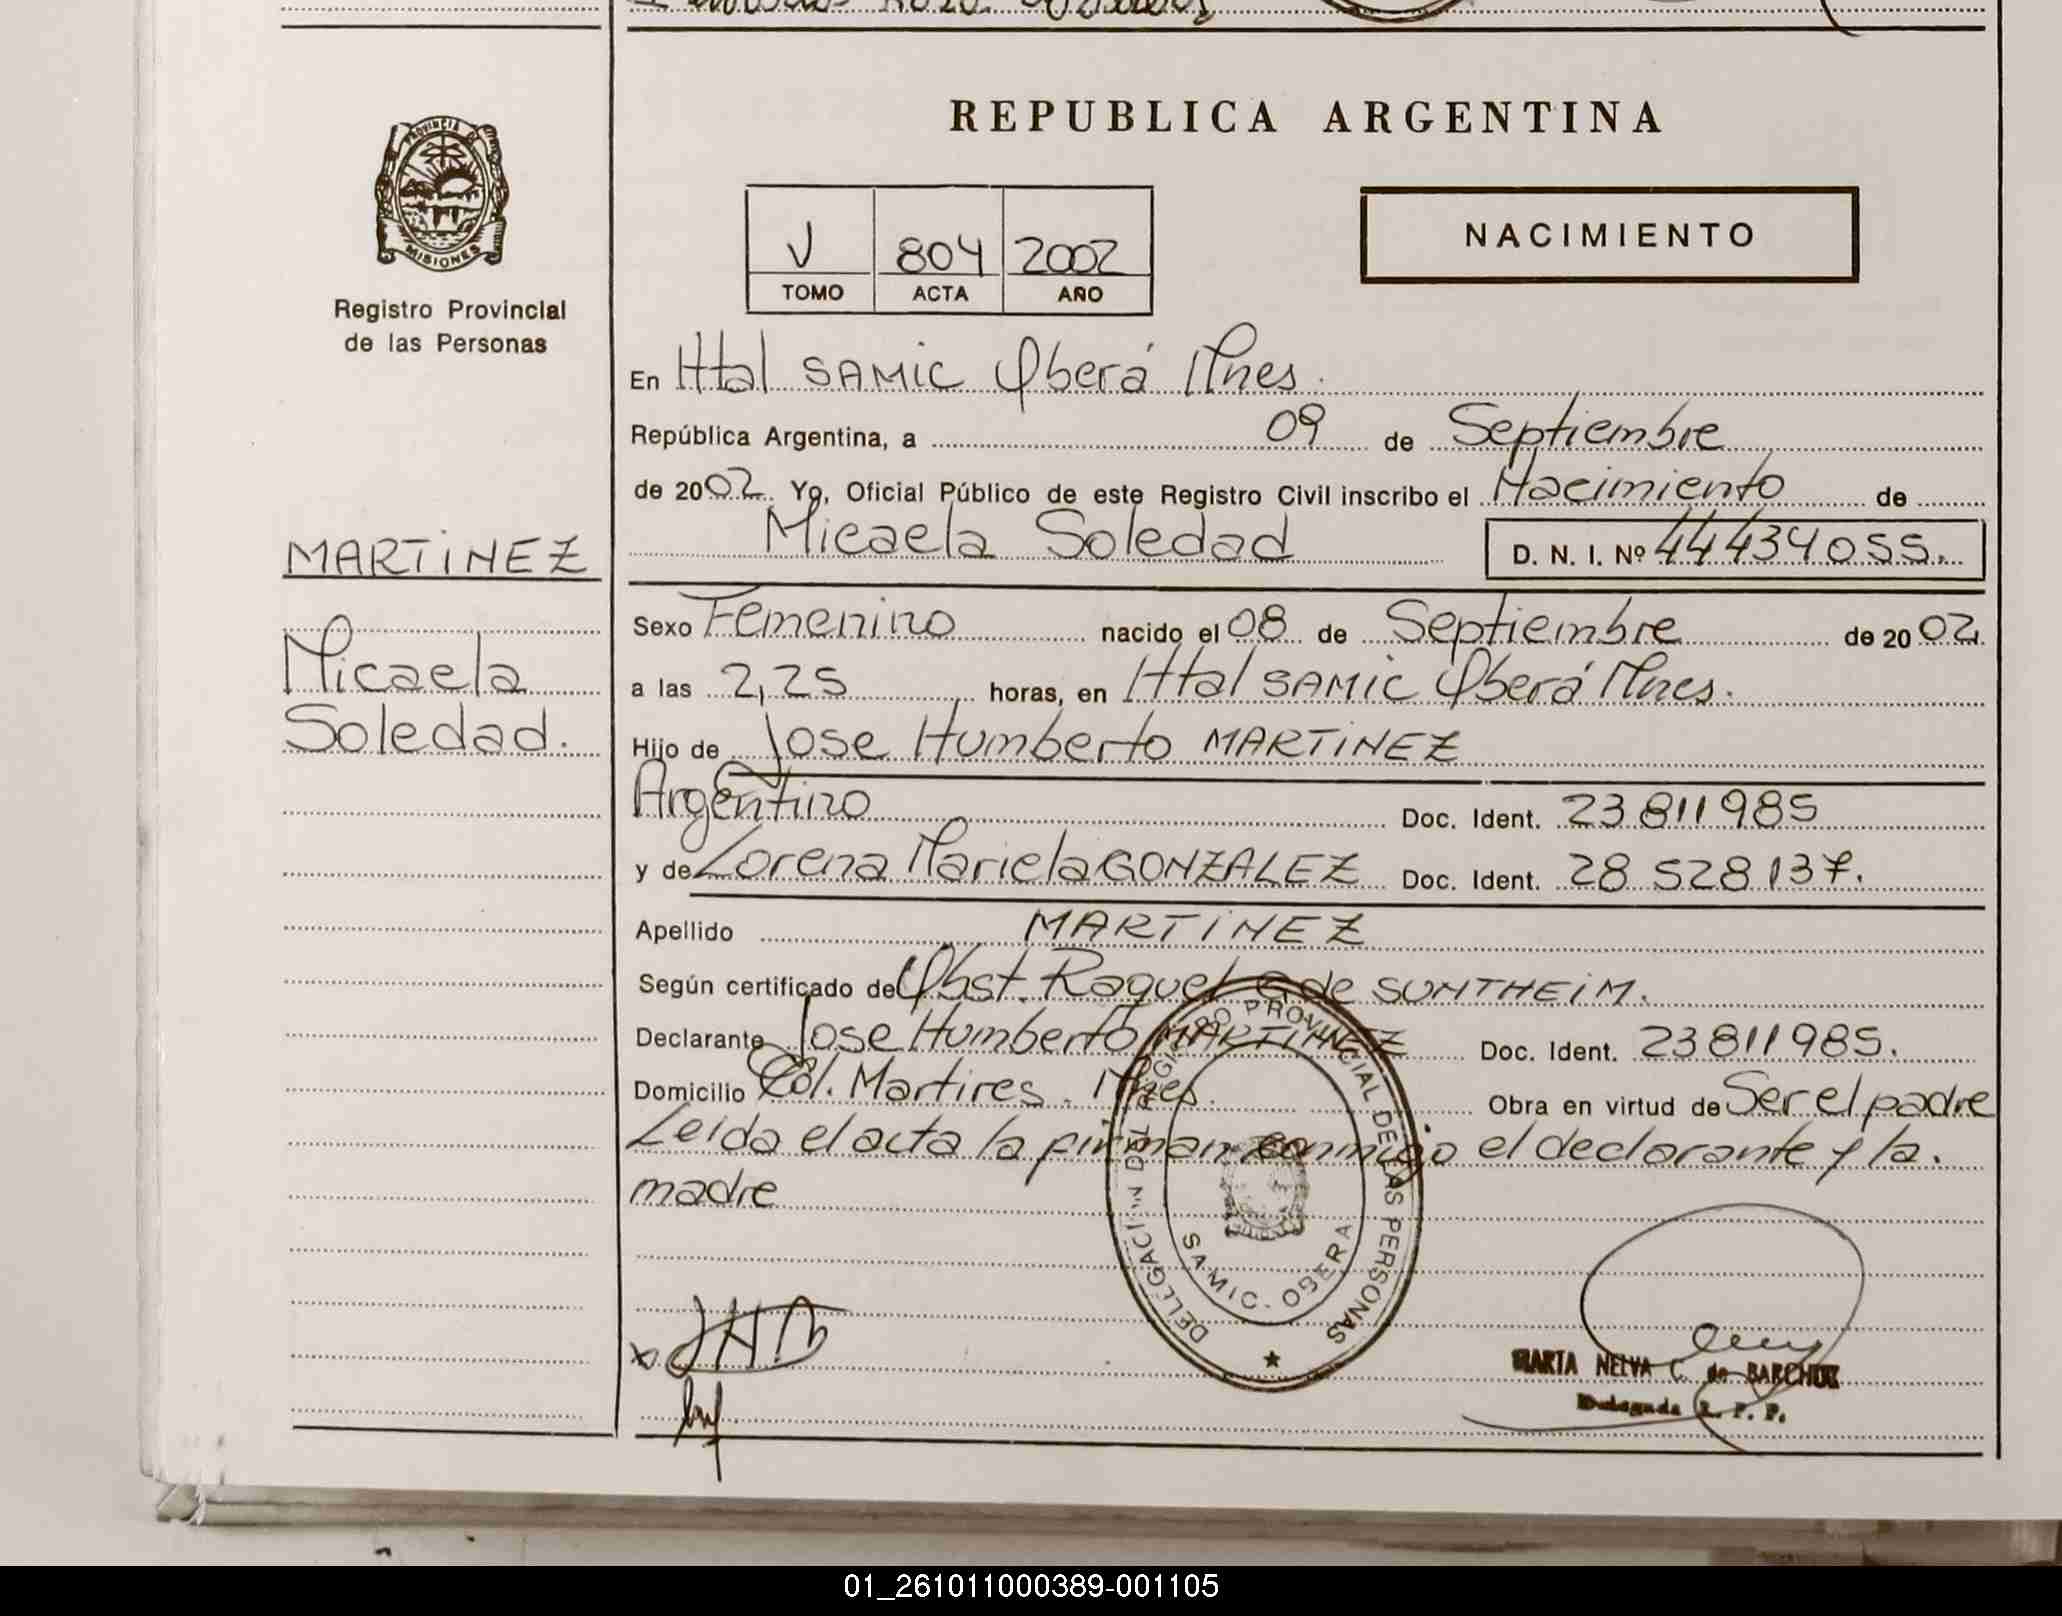 REPUBLICA ARGENTINA
PROVINCIA DE
MISIONES
Registro Provincial
de las Personas
V 804 2002
TOMO ACTA AÑO
NACIMIENTO
En Htal SAMIC Oberá Mnes.
República Argentina, a 09 de Septiembre
de 2002. Yo, Oficial Público de este Registro Civil inscribo el Nacimiento de
Micaela Soledad D. N. I. Nº 44434055.
MARTINEZ
Micaela
Soledad.
Sexo Femenino nacido el 08 de Septiembre de 2002
a las 2,25 horas, en Htal SAMIC Oberá Mnes.
Hijo de Jose Humberto MARTINEZ
Argentino Doc. Ident. 23811985
y de Lorena Mariela GONZALEZ Doc. Ident. 28528137.
Apellido MARTINEZ
Según certificado de Obst. Raquel G de SUNTHEIM.
Declarante Jose Humberto MARTINEZ Doc. Ident. 23811985.
Domicilio Col. Martires. Mnes. Obra en virtud de Ser el padre
Leida el acta la firman conmigo el declarante y la.
madre
DELEGACION DEL REGISTRO PROVINCIAL DE LAS PERSONAS
SAMIC - OBERA
JHM
MARTA NELVA C. de BARCHUK
Delegada R. P. P.
01_261011000389-001105